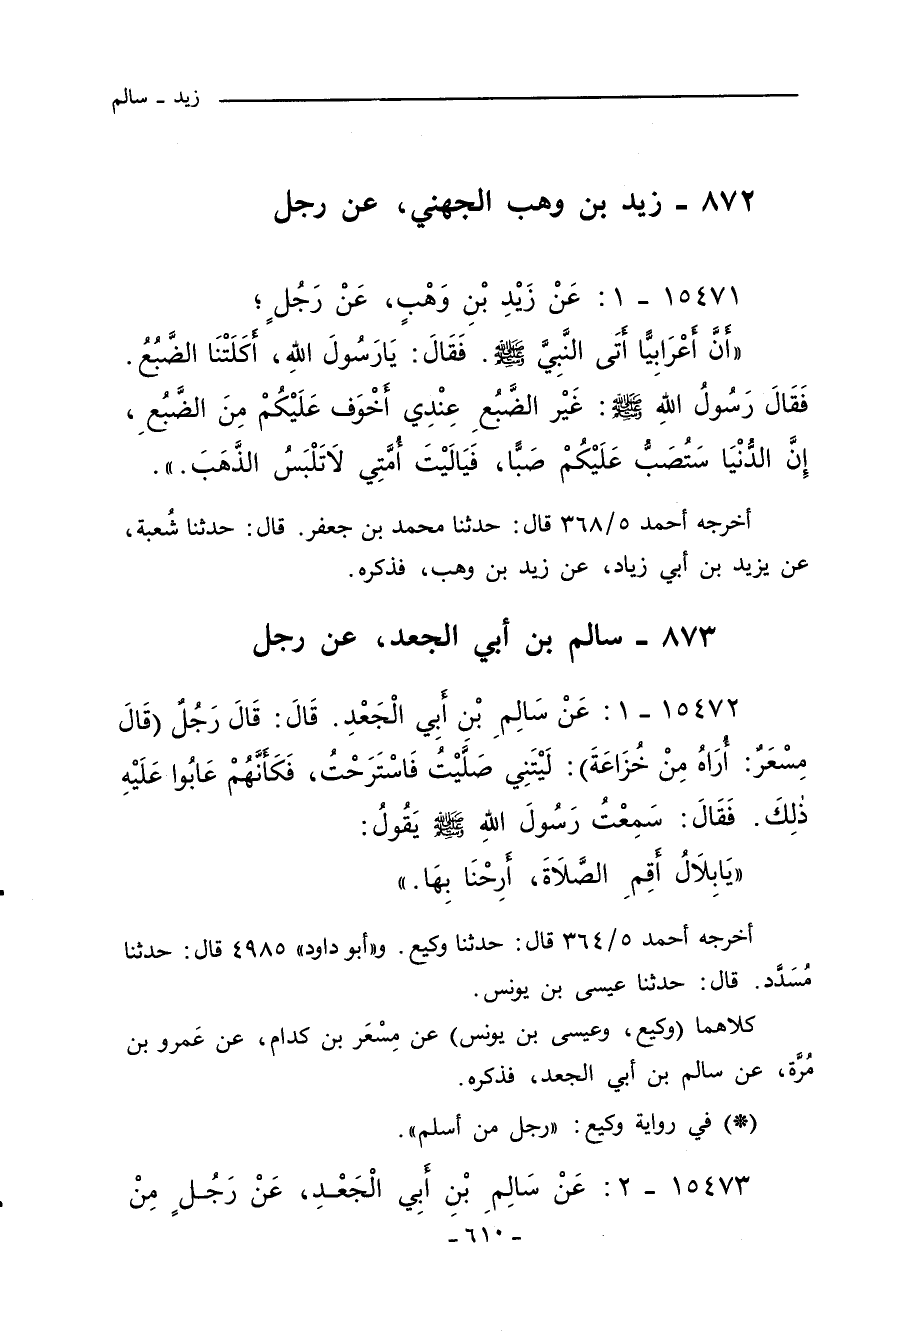 زيد ـ سالم
٨٧٢ ـ زيد بن وهب الجهني، عن رجل
١٥٤٧١ ـ ١: عَنْ زَيْدِ بْنِ وَهْبٍ، عَنْ رَجُلٍ؛
«أَنَّ أَعْرَابِيًّا أَتَى النَّبِيَّ ﷺ. فَقَالَ: يَارَسُولَ اللهِ، أَكَلَتْنَا الضَّبُعُ.
فَقَالَ رَسُولُ اللهِ ﷺ: غَيْر الضَّبُعِ عِنْدِي أَخْوَف عَلَيْكُمْ مِنَ الضَّبُعِ،
إِنَّ الدُّنْيَا سَتُصَبُّ عَلَيْكُمْ صَبًّا، فَيَالَيْتَ أُمَّتِي لاَتَلْبَسُ الذَّهَبَ.».
أخرجه أحمد ٣٦٨/٥ قال: حدثنا محمد بن جعفر. قال: حدثنا شُعبة،
عن يزيد بن أبي زياد، عن زيد بن وهب، فذكره.
٨٧٣ ـ سالم بن أبي الجعد، عن رجل
١٥٤٧٢ ـ ١: عَنْ سَالِمِ بْنِ أَبِي الْجَعْدِ. قَالَ: قَالَ رَجُلٌ (قَالَ
مِسْعَرٌ: أُرَاهُ مِنْ خُزَاعَةَ): لَيْتَنِي صَلَّيْتُ فَاسْتَرَحْتُ، فَكَأَنَّهُمْ عَابُوا عَلَيْهِ
ذٰلِكَ. فَقَالَ: سَمِعْتُ رَسُولَ اللهِ ﷺ يَقُولُ:
«يَابِلَالُ أَقِمِ الصَّلَاةَ، أَرِحْنَا بِهَا.»
أخرجه أحمد ٣٦٤/٥ قال: حدثنا وكيع. و«أبو داود» ٤٩٨٥ قال: حدثنا
مُسَدَّد. قال: حدثنا عيسى بن يونس.
كلاهما (وكيع، وعيسى بن يونس) عن مِسْعَر بن كدام، عن عَمرو بن
مُرَّة، عن سالم بن أبي الجعد، فذكره.
(*) في رواية وكيع: «رجل من أسلم».
١٥٤٧٣ ـ ٢: عَنْ سَالِمِ بْنِ أَبِي الْجَعْدِ، عَنْ رَجُلٍ مِنْ
ـ ٦١٠ ـ